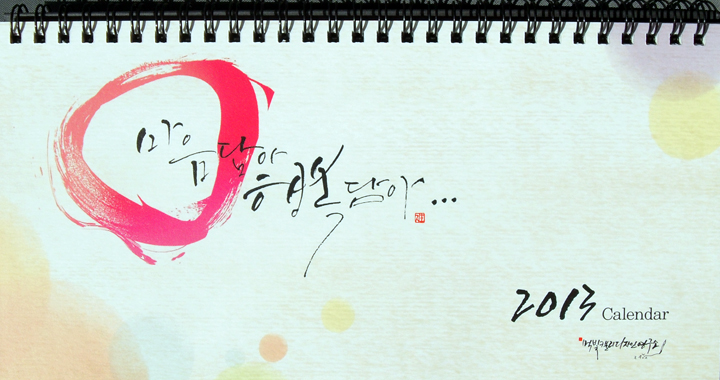 마음담아
행복담아...
2013 Calendar